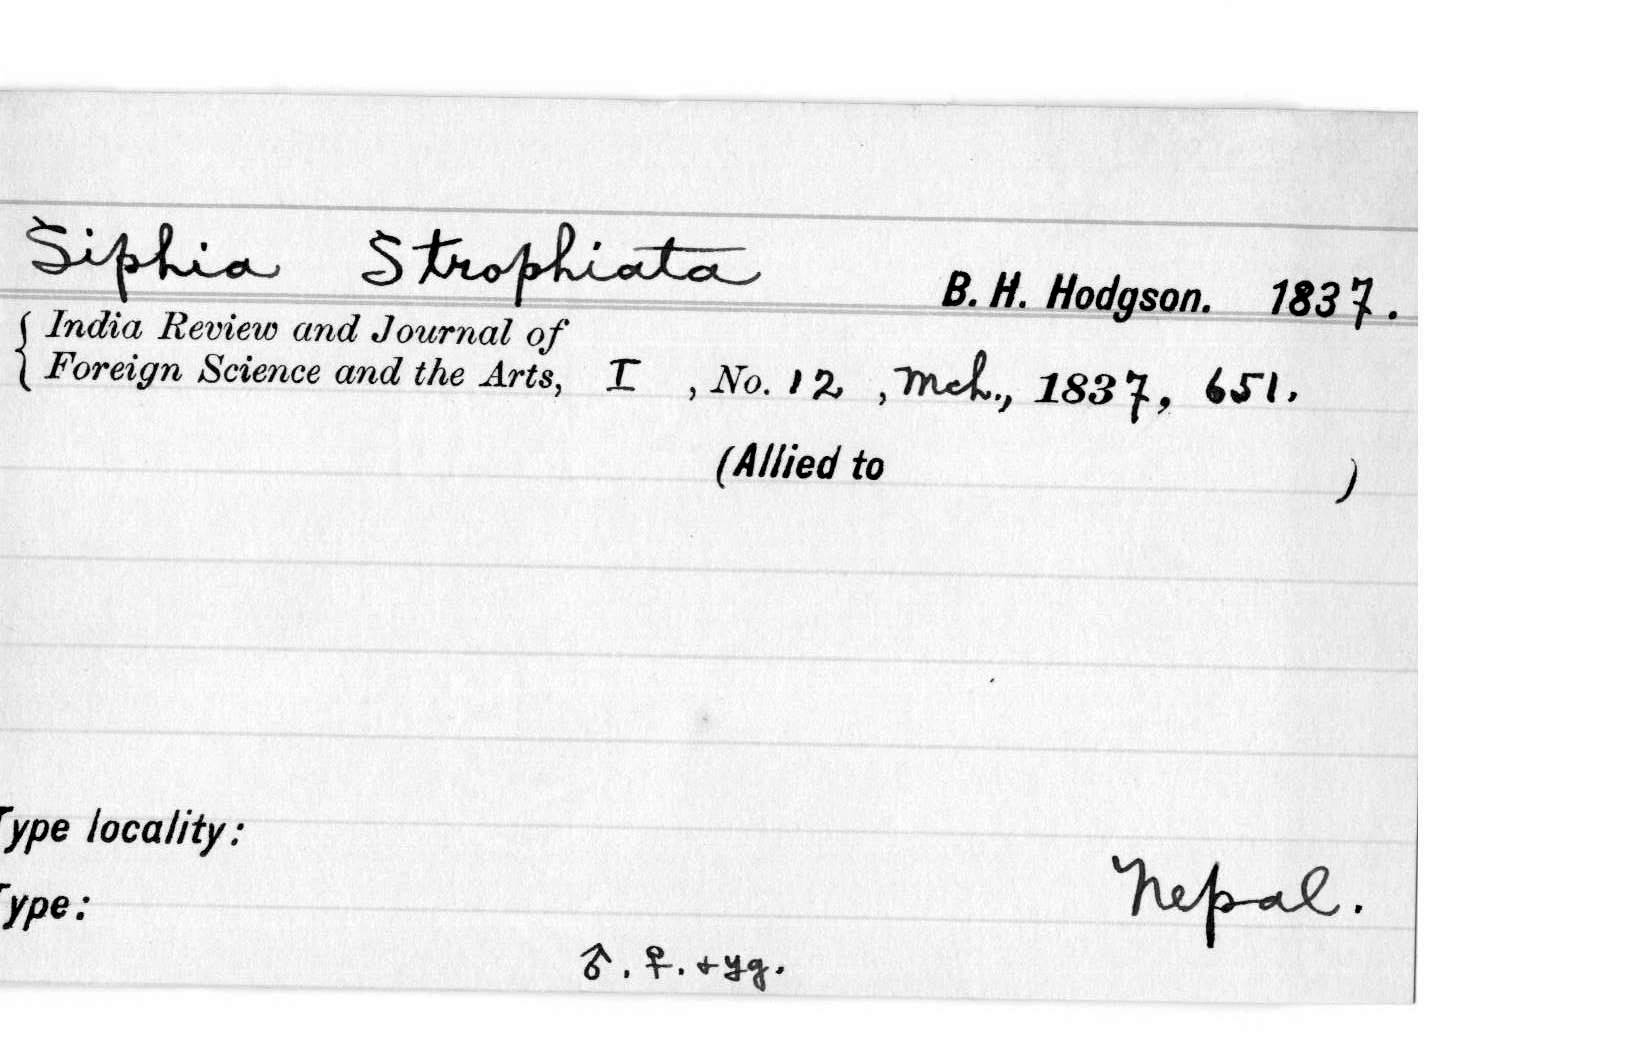 Siphia Strophiata B. H. Hodgson. 1837.
{ India Review and Journal of
Foreign Science and the Arts, I , No. 12 , Mch., 1837, 651.
(Allied to )
Type locality:
Nepal.
Type:
♂. ♀. + yg.